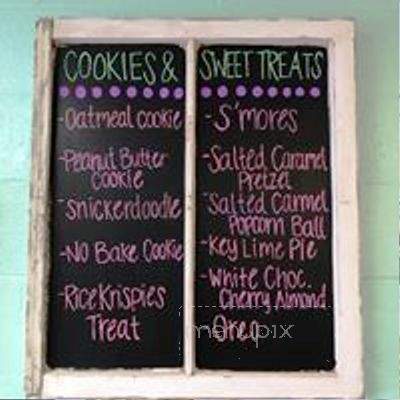 COOKIES &
-Oatmeal cookie
-Peanut Butter
Cookie
-Snickerdoodle
-NO Bake Cookie
-Rice Krispies
Treat
SWEET TREATS
-S'mores
-Salted Caramel
Pretzel
-Salted Carmel
Popcorn Ball
-Key Lime Pie
-White Choc.
Cherry Almond
Oreo
menupix